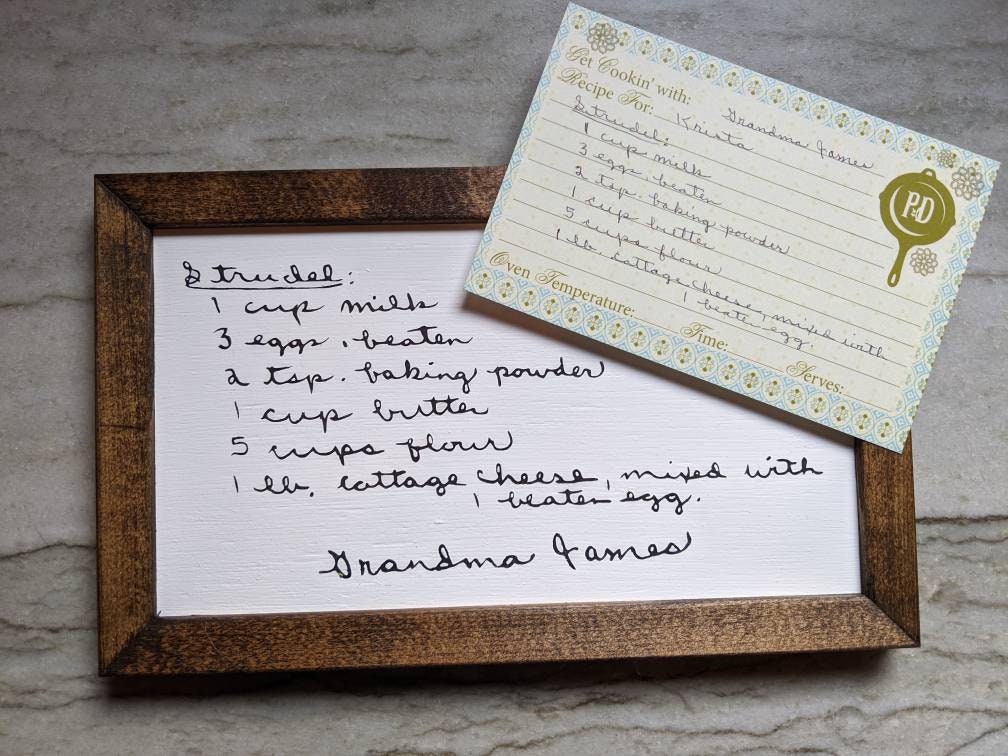 Strudel:
1 cup milk
3 eggs, beaten
2 tsp. baking powder
1 cup butter
5 cups flour
1 lb. cottage cheese, mixed with
1 beaten egg.
Grandma James
Get Cookin' with: Grandma James
Recipe For: Krista
Strudel:
1 cup milk
3 eggs, beaten
2 tsp. baking powder
1 cup butter
5 cups flour
1 lb. cottage cheese, mixed with
1 beaten egg.
Oven Temperature: Time: Serves:
P&D